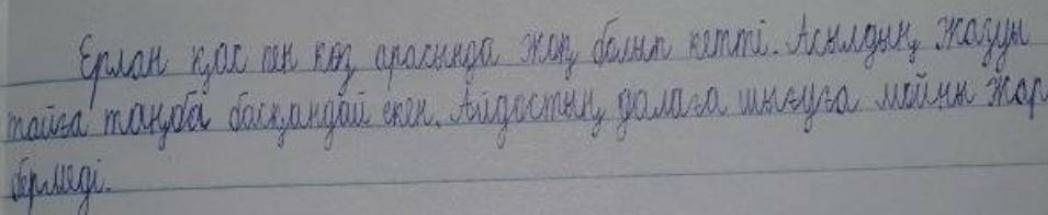 Ерлан қас пен көз арасында жоқ болып кетті. Асылдың жазуы
тайға таңба басқандай екен. Айдостың далаға шығуға мойны жар
бермеді.